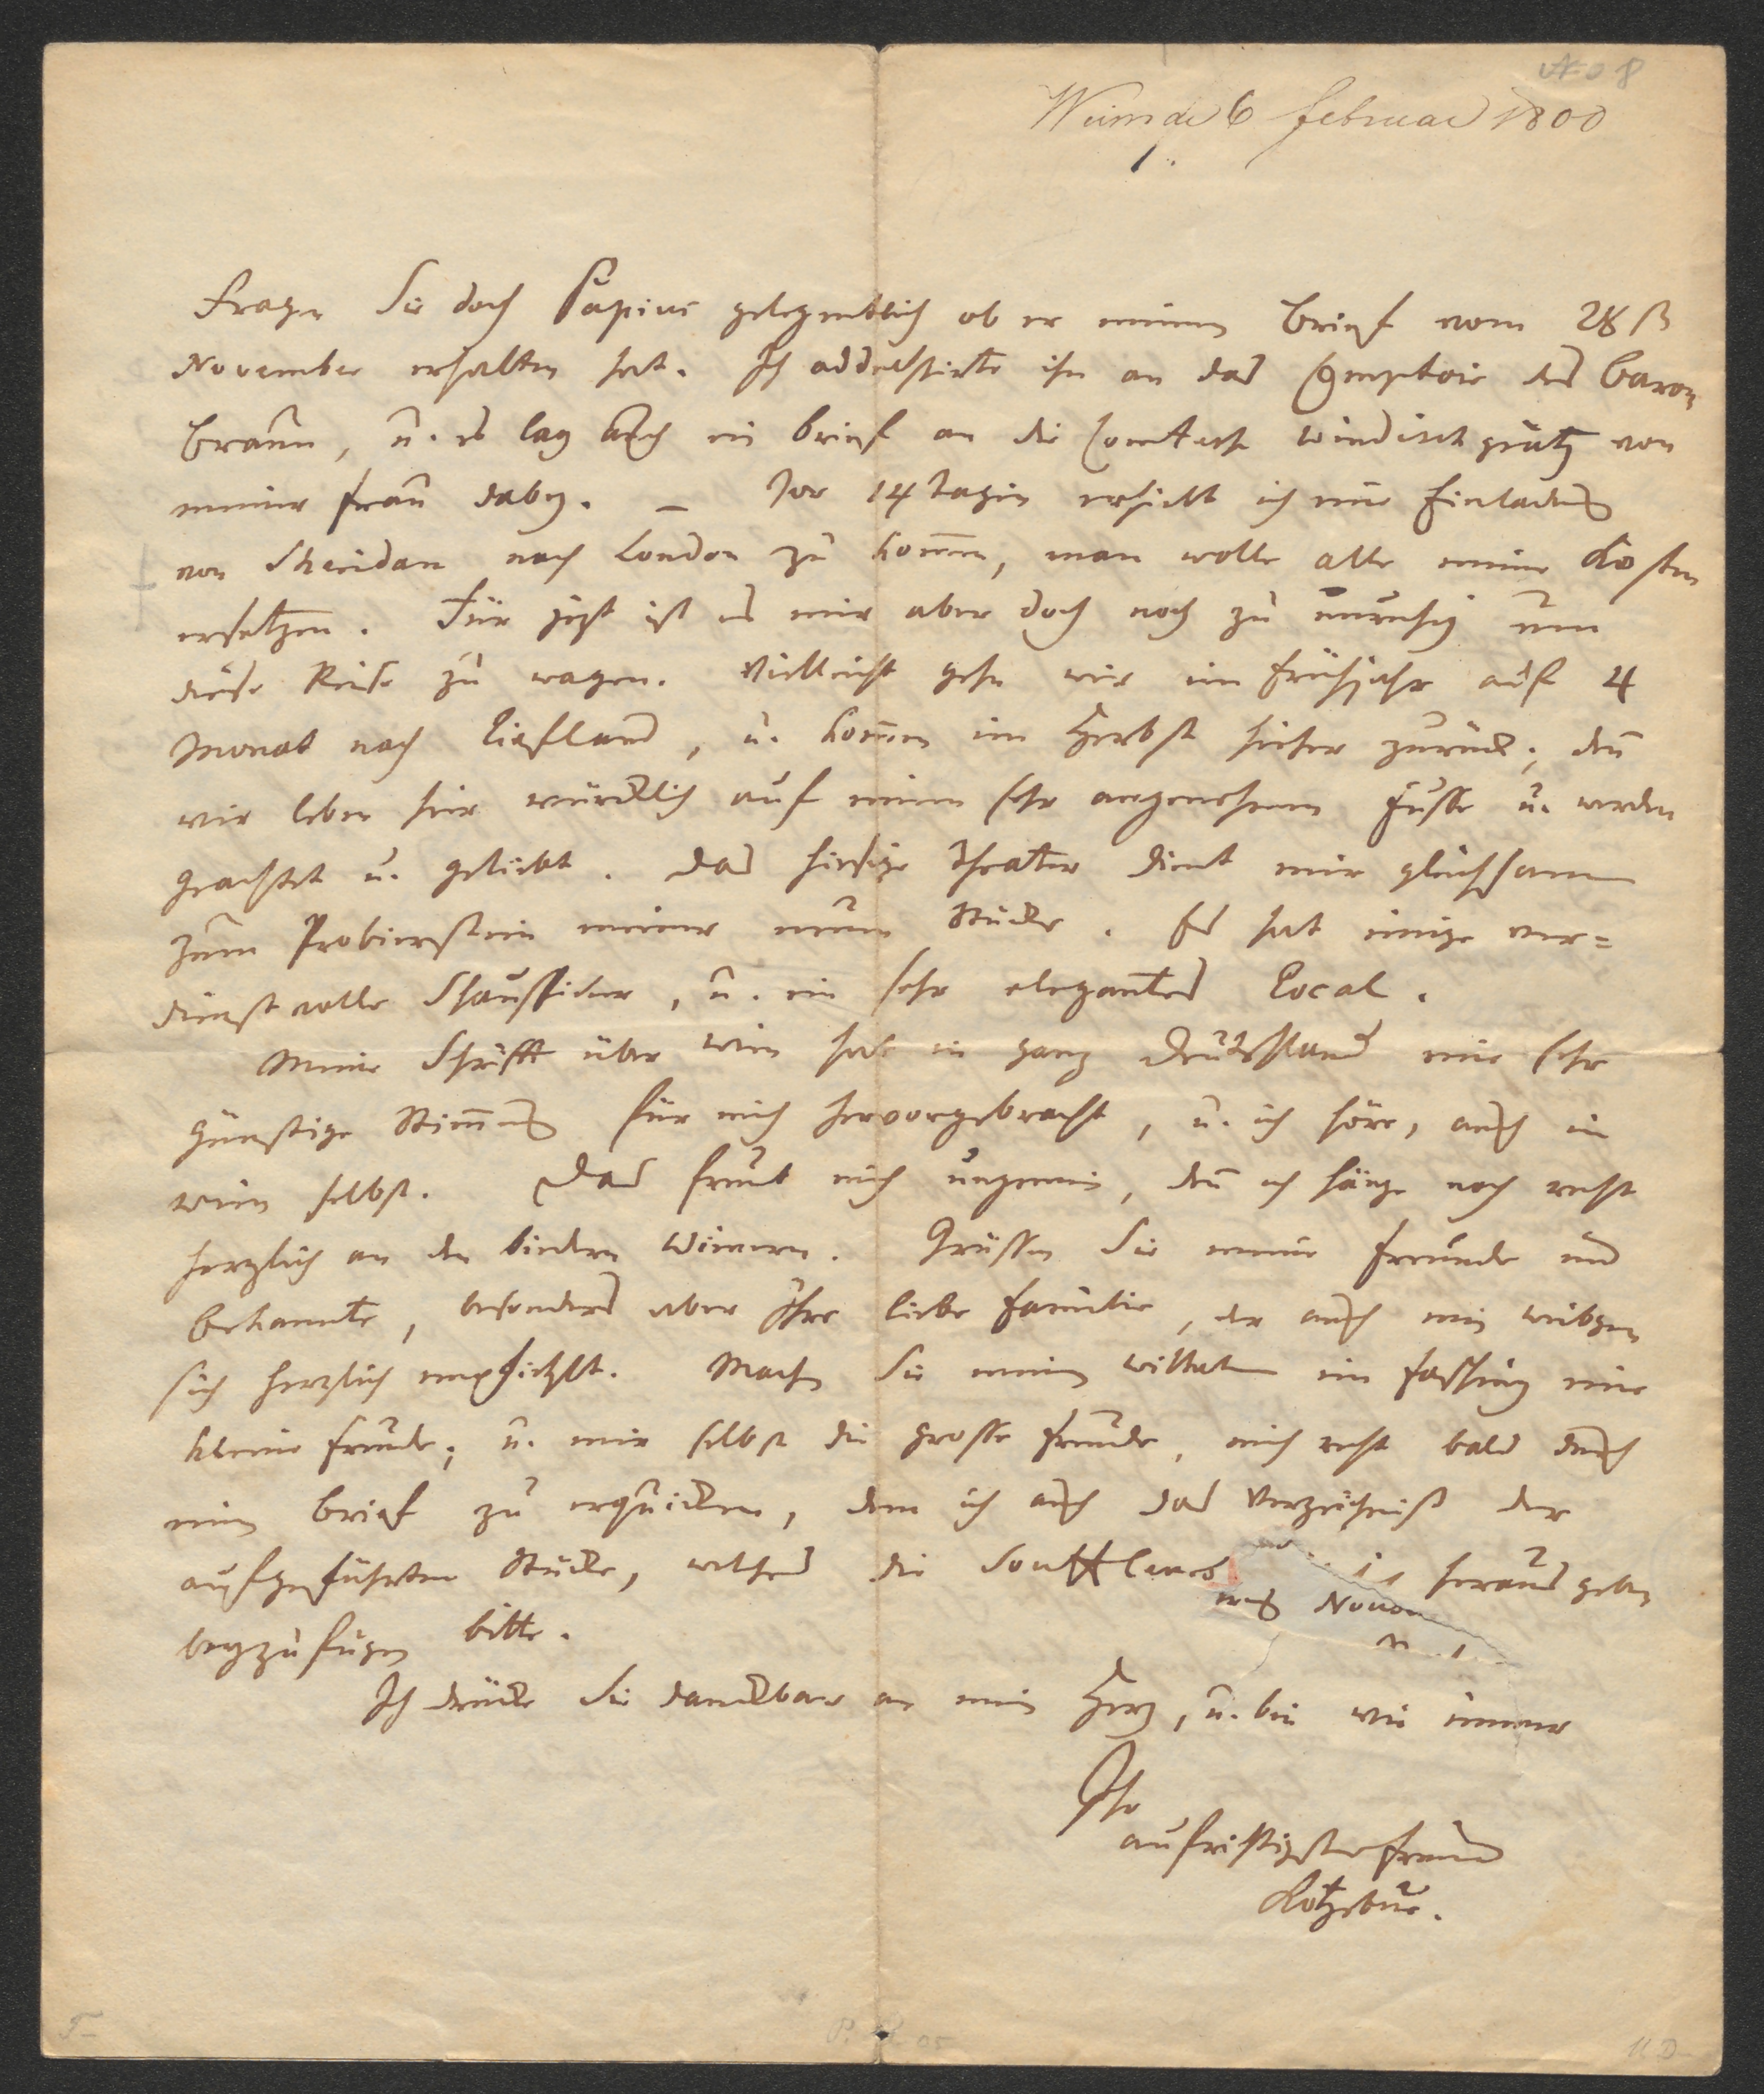 No 8
Weim de 6 Februar 1800
Fragen Sie doch Papius gelegentlich ob er meinen Brief vom 28ß
November erhalten hat. Ich addressirte ihn an das Comptoir des Baron
Braun, u. es lag auch ein Brief an die Comtesse Windischgrätz von
meiner Frau dabey. – Vor 14 Tagen erhielt ich eine Einladung
von Sheridan nach London zu kommen, man wolle alle meine Kosten
ersetzen. Für jezt ist es mir aber doch noch zu unruhig um
diese Reise zu wagen. Vielleicht gehn wir im Frühjahr auf 4
Monat nach Liefland, u. kommen im Herbst hieher zurück; denn
wir leben hier würcklich auf einem sehr angenehmen Fusse u. werden
geachtet u. geliebt. Das hiesige Theater dient mir gleichsam
zum Probierstein meiner neuen Stücke. Es hat einige ver=
dienstvolle Schauspieler, u. ein sehr elegantes Local.
Meine Schrifft über Wien hat in ganz Deutschland eine sehr
günstige Stimmung für mich hervorgebracht, u. ich höre, auch in
Wien selbst. Das freut mich ungemein, denn ich hänge noch recht
herzlich an den biedern Wienern. Grüssen Sie meine Freunde und
Bekannte, besonders aber Ihre liebe Familie, der auch mein Weibchen
sich herzlich empfiehlt. Machen Sie meinem Willhelm im Fasching eine
kleine Freude; u. mir selbst die grosse Freude, mich recht bald durch
einen Brief zu erquicken, dem ich auch das Verzeichniß der
aufgeführten Stücke, welches die Souffleurs herausgeben
beyzufügen bitte.
Ich drücke Sie danckbar an mein Herz, u. bin wie immer
Ihr
aufrichtigster Freund
Kotzebue.